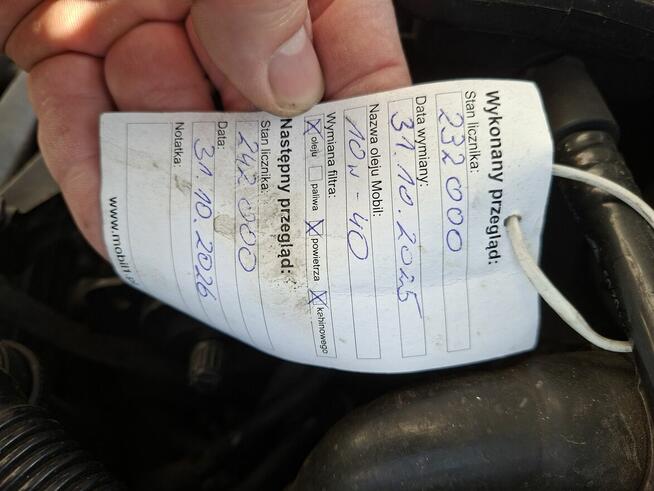 Wykonany przegląd:
Stan licznika:
232 000
Data wymiany:
31.10.2025
Nazwa oleju Mobil:
10W-40
Wymiana filtra:
X oleju paliwa X powietrza X kabinowego
Następny przegląd:
Stan licznika:
242 000
Data:
31 10.2026
Notatka:
www.mobil1.p